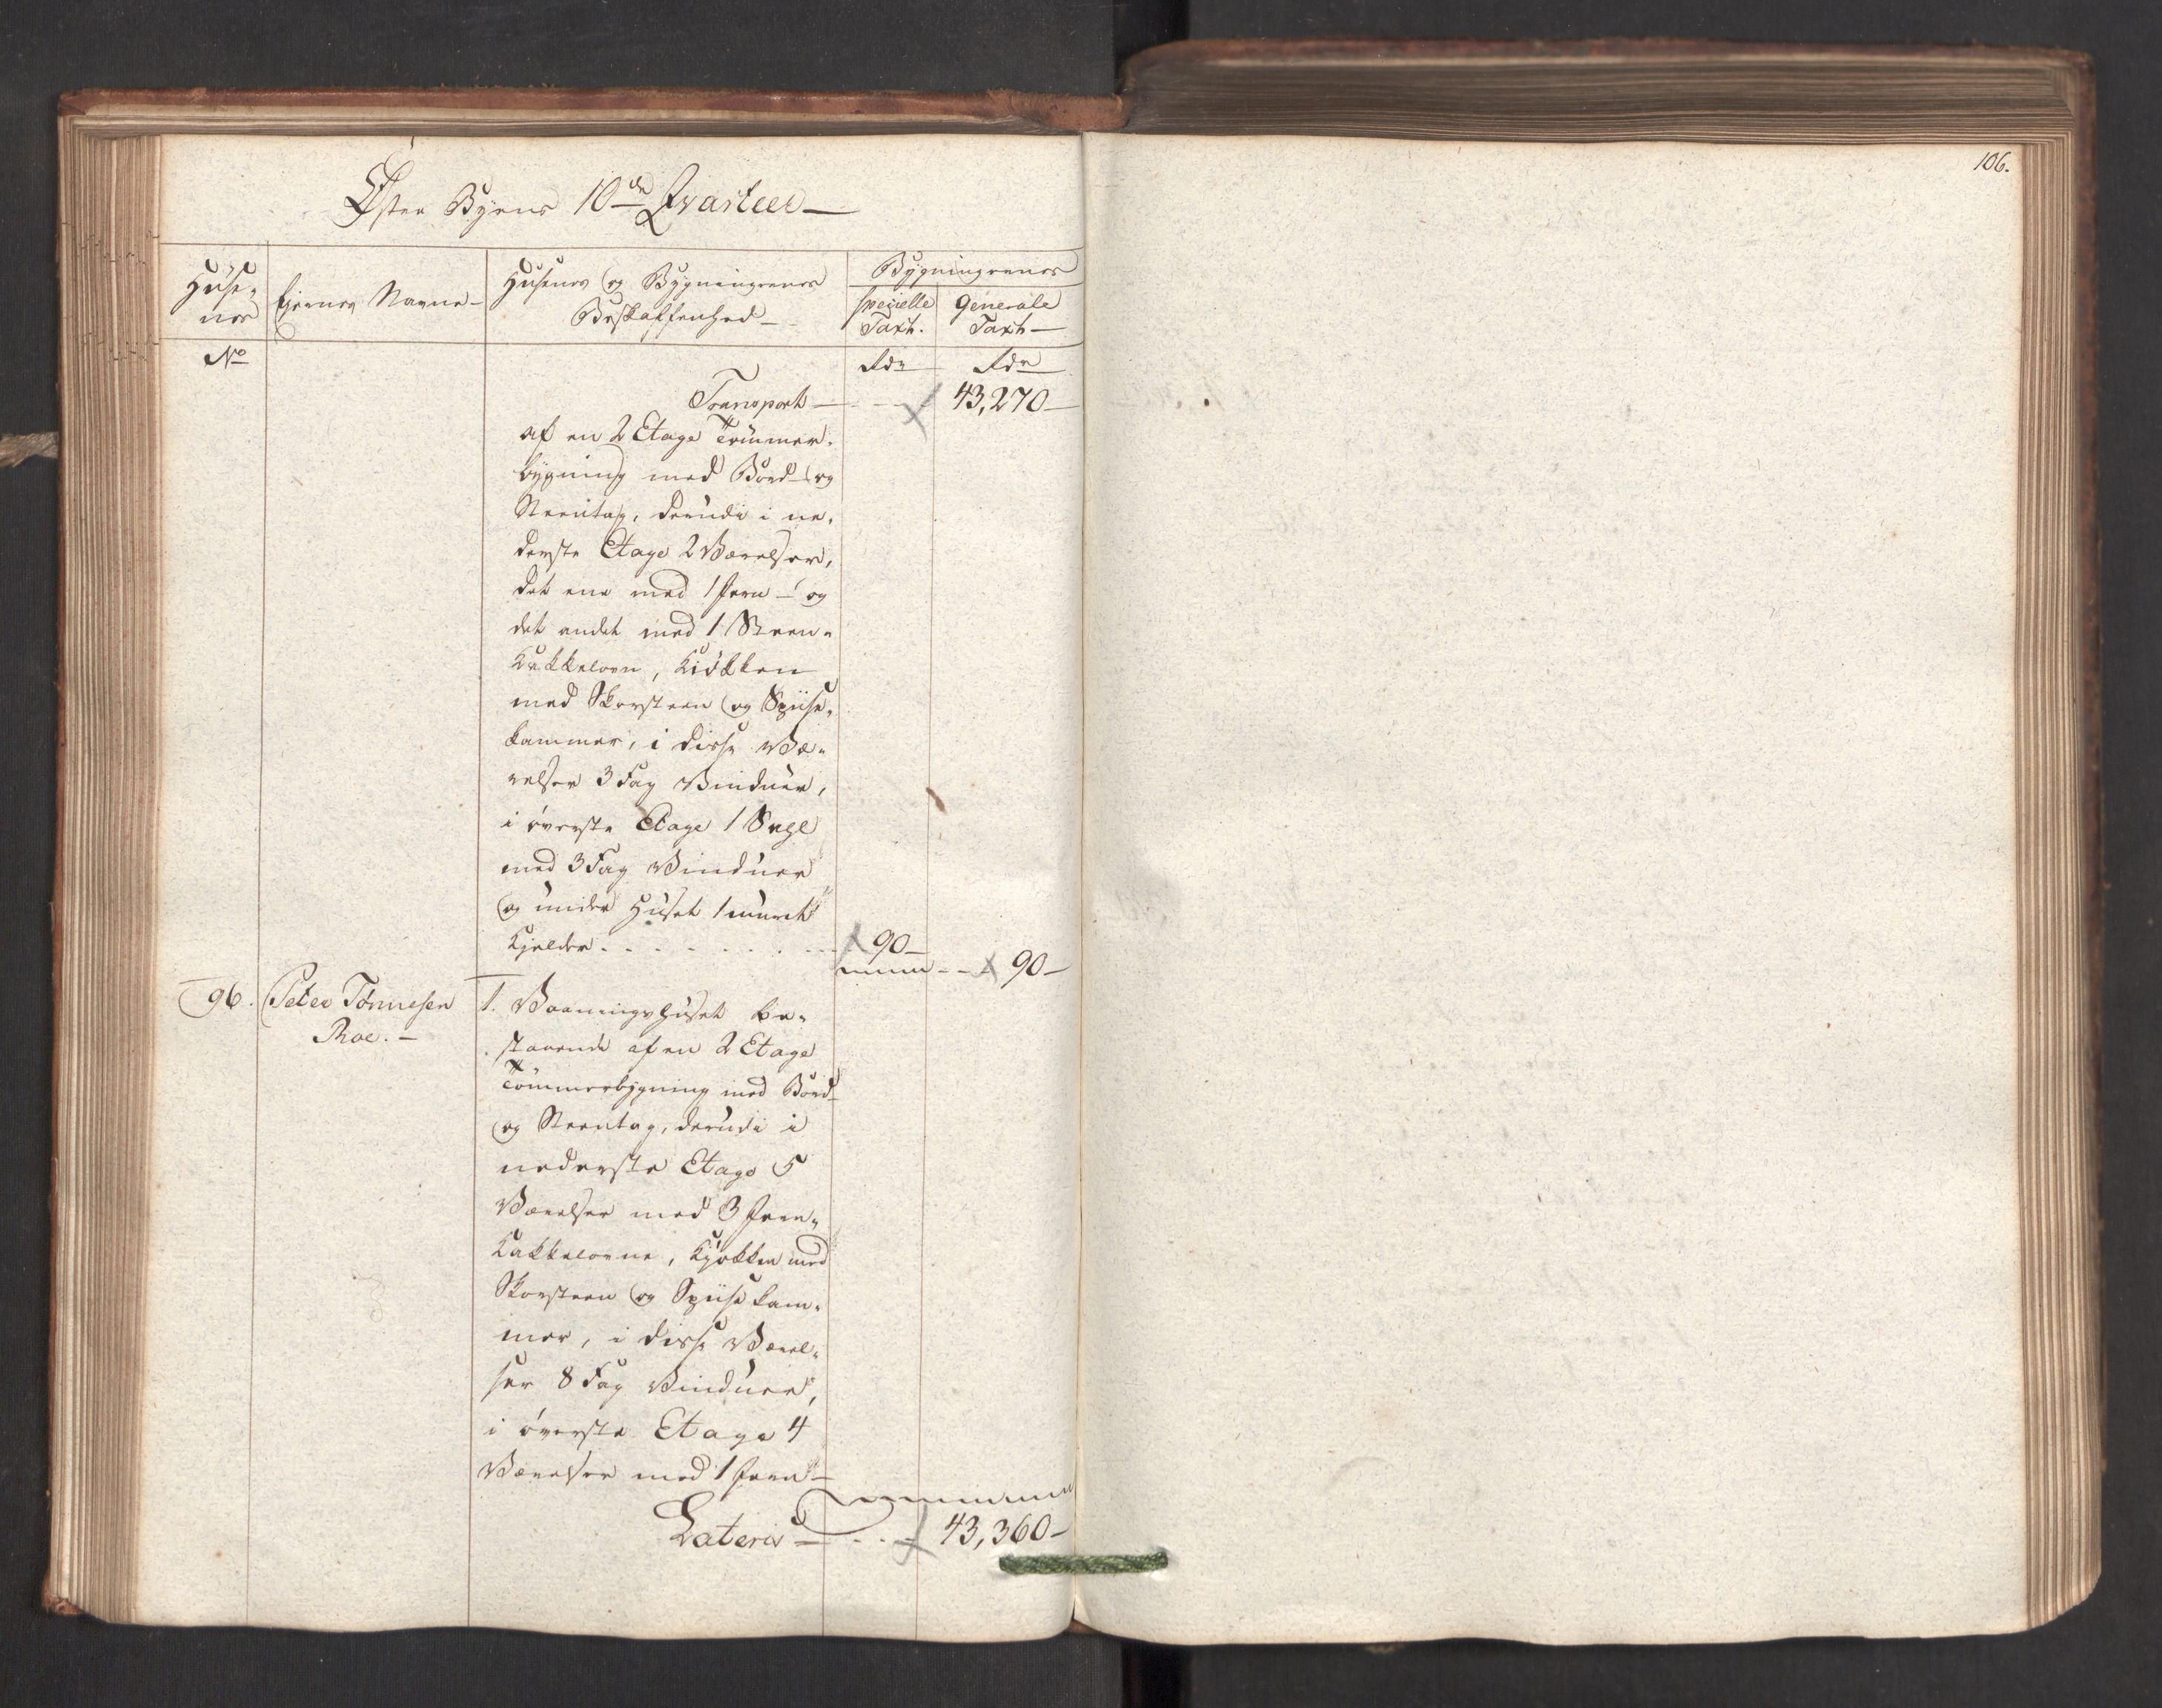 106.
Öster Byens 10de Qvarteer
Huse-
nes
Eiernes Navne
Husenes og Bygningernes
Beskaffenhed
Bygningernes
specielle
Taxt.
Generale
Taxt
No
Rdr
Rdr
Transport 43,270
af en 2 Etage Tömmer-
bygning med Bord- og
Steentag, derudi i ne-
derste Etage 2 Værelser,
det ene med 1 Jern- og
det andet med 1 Steen-
Kakkelovn, Kiökken
med Skorsteen og Spiise-
kammer, i disse Væ-
relser 3 Fag Vinduer,
i överste Etage 1 Sahl
med 3 Fag Vinduer
og under Huset 1 muret
Kjelder 90
90
96. Peter Tönnesen 1. Vaaningshuset be-
Roe. staaende af en 2 Etage
Tömmerbygning med Bord-
og Steentag, derudi i
nederste Etage 5
Værelser med 3 Jern-
Kakkelovne, Kjökken med
Skorsteen og Spiisekam-
mer, i disse Værel-
ser 8 Fag Vinduer,
i överste Etage 4
Værelser med 1 Jern-
Lateris 43,360